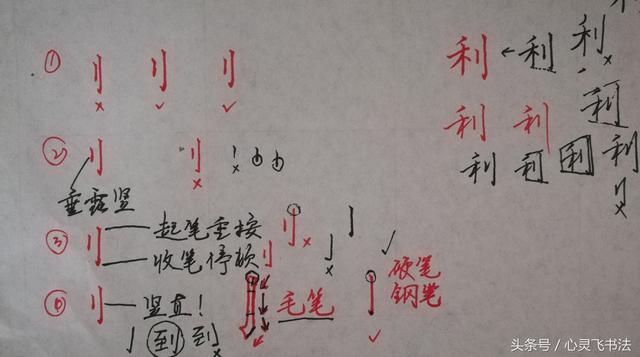 ① 刂 刂 刂 利 ← 利 利
利
② 刂 刂 利 利 利 利 利 利
垂露竖
③ 刂 起笔重按
收笔停顿
硬笔
钢笔
④ 刂 竖直! 毛笔
亅 到 到
头条号 / 心灵飞书法